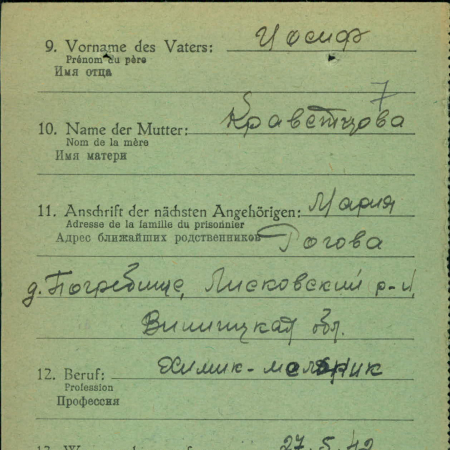 9. Vorname des Vaters: Иосиф
Prénom du père
Имя отца
7
10. Name der Mutter: Краветцова
Nom de la mère
Имя матери
11. Anschrift der nächsten Angehörigen: Мария
Adresse de la famille du prisonnier
Адрес ближайших родственников Рогова
д. Погребище, Лисковский р-н,
Виницкая обл.
12. Beruf: Химик-мельник
Profession
Профессия
27.5.42